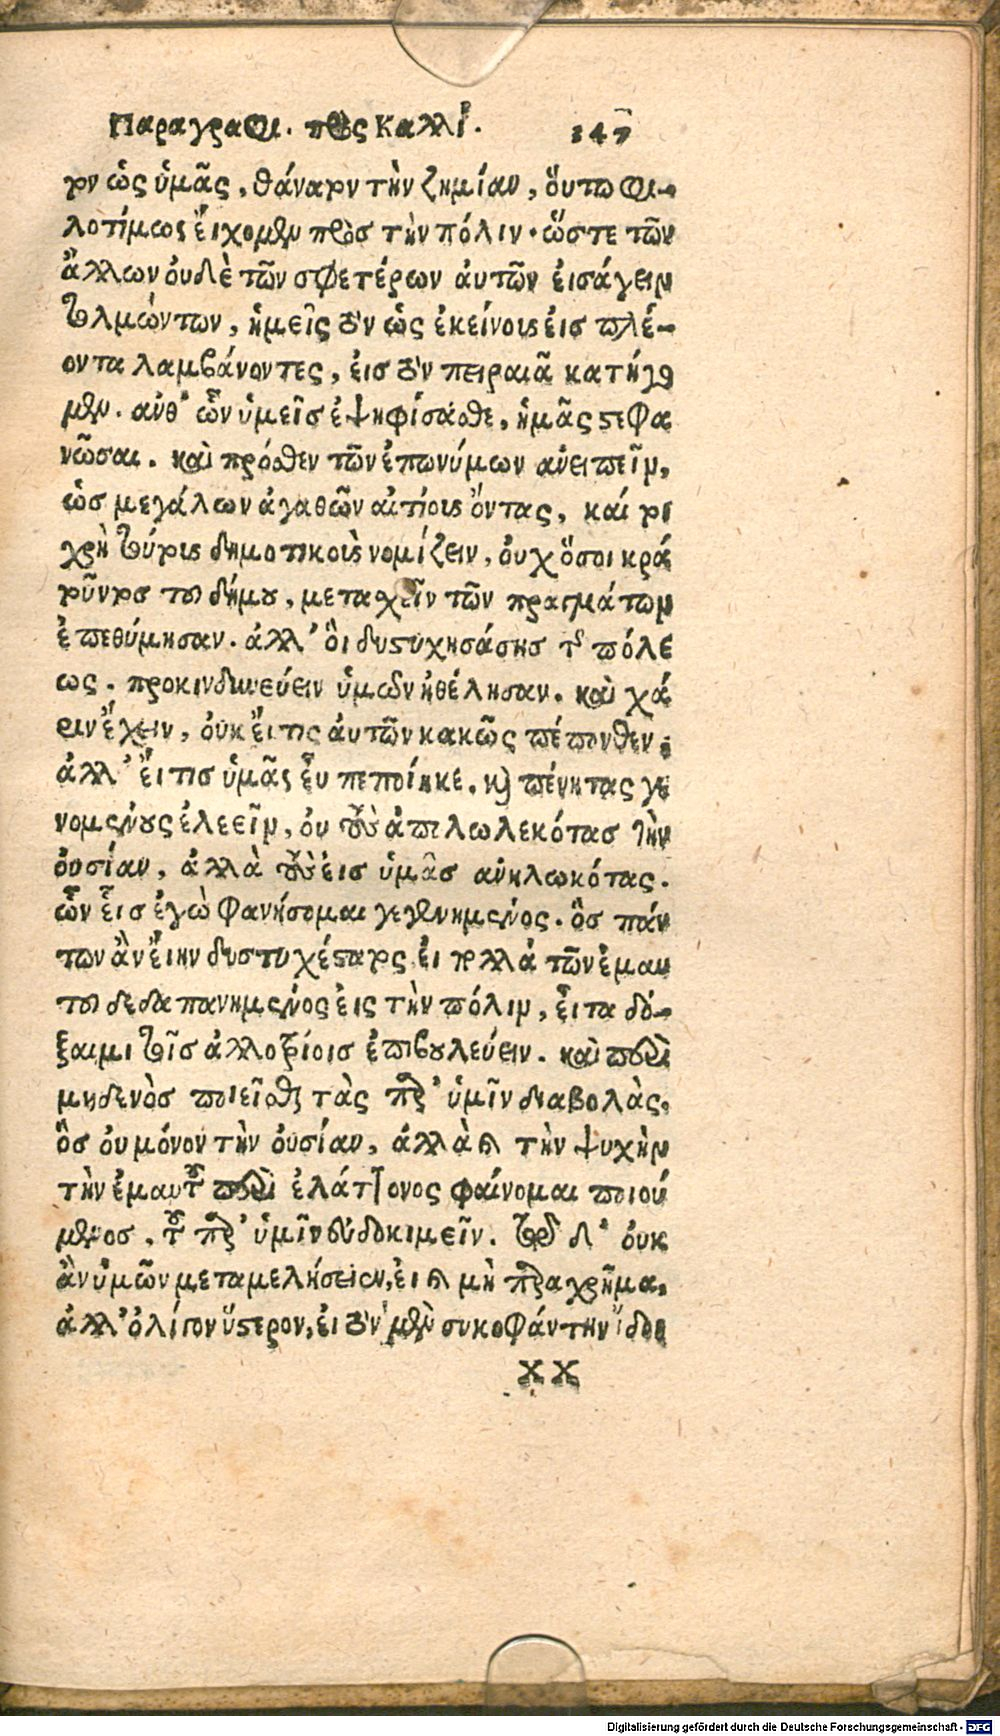 Παραγραφὴ. πρὸς Καλλί. 247
τον ὡς ὑμᾶς, θάνατον τὴν ζημίαν, ὅυτω φι-
λοτίμως ἔιχομεν πρὸσ τὴν πόλιν· ὥστε τῶν
ἄλλων ὀυδὲ τῶν σφετέρων ἀυτῶν ἐισάγειν
τολμώντων, ἡμεῖς τὸν ὡς ἐκείνους ἐισ πλέ-
οντα λαμβάνοντες, ἐισ τὸν πειραιᾶ κατήγο
μεν. ἀνθ' ὧν ὑμεῖσ ἐψηφίσασθε, ἡμᾶς στεφα
νῶσαι. καὶ πρόσθεν τῶν ἐπωνύμων ἀνειπεῖν,
ὡσ μεγάλων ἀγαθῶν αἰτίους ὄντας, καίτοι
χρὴ τούτους δημοτικοὺς νομίζειν, ὀυχ ὅσοι κρα
τοῦντοσ τοῦ δήμου, μετασχεῖν τῶν πραγμάτων
ἐπεθύμησαν. ἀλλ' ὃι δυστυχησάσησ τῆς πόλε
ως. προκινδυνεύειν ὑμῶν ἠθέλησαν. καὶ χά
ριν ἔχειν, ὀυκ ἔι τις ἀυτῶν κακῶς πέπονθεν,
ἀλλ' ἔι τισ ὑμᾶς ἐυ πεποίηκε, καὶ πένητας γε
νομένους ἐλεεῖν, ὀυ τοὺς ἀπολωλεκότασ τὴν
ὀυσίαν, ἀλλὰ τοὺς ἐισ ὑμᾶσ ἀνηλωκότας.
ὧν ἐισ ἐγὼ φανήσομαι γεγενημένος. ὃσ πάν
των ἂν ἔιην δυστυχέστατος, ἐι πολλὰ τῶν ἐμαυ
τοῦ δεδαπανημένος ἐις τὴν πόλιν, ἔιτα δό-
ξαιμι τοῖσ ἀλλοτρίοισ ἐπιβουλεύειν. καὶ περὶ
μηδενὸσ ποιεῖσθαι τὰς παρ' ὑμῖν διαβολὰς,
ὃσ ὀυ μόνον τὴν ὀυσίαν, ἀλλὰ καὶ τὴν ψυχὴν
τὴν ἐμαυτοῦ περὶ ἐλάττονος φαίνομαι ποιού
μενοσ, τοῦ παρ' ὑμῖν ἐυδοκιμεῖν. τῷ δ' ὀυκ
ἂν ὑμῶν μεταμελήσειεν, ἐι καὶ μὴ παραχρῆμα,
ἀλλ' ὀλίγον ὕστερον, ἐι τὸν μὲν συκοφάντην ἴδοι
XX
Digitalisierung gefördert durch die Deutsche Forschungsgemeinschaft - DFG